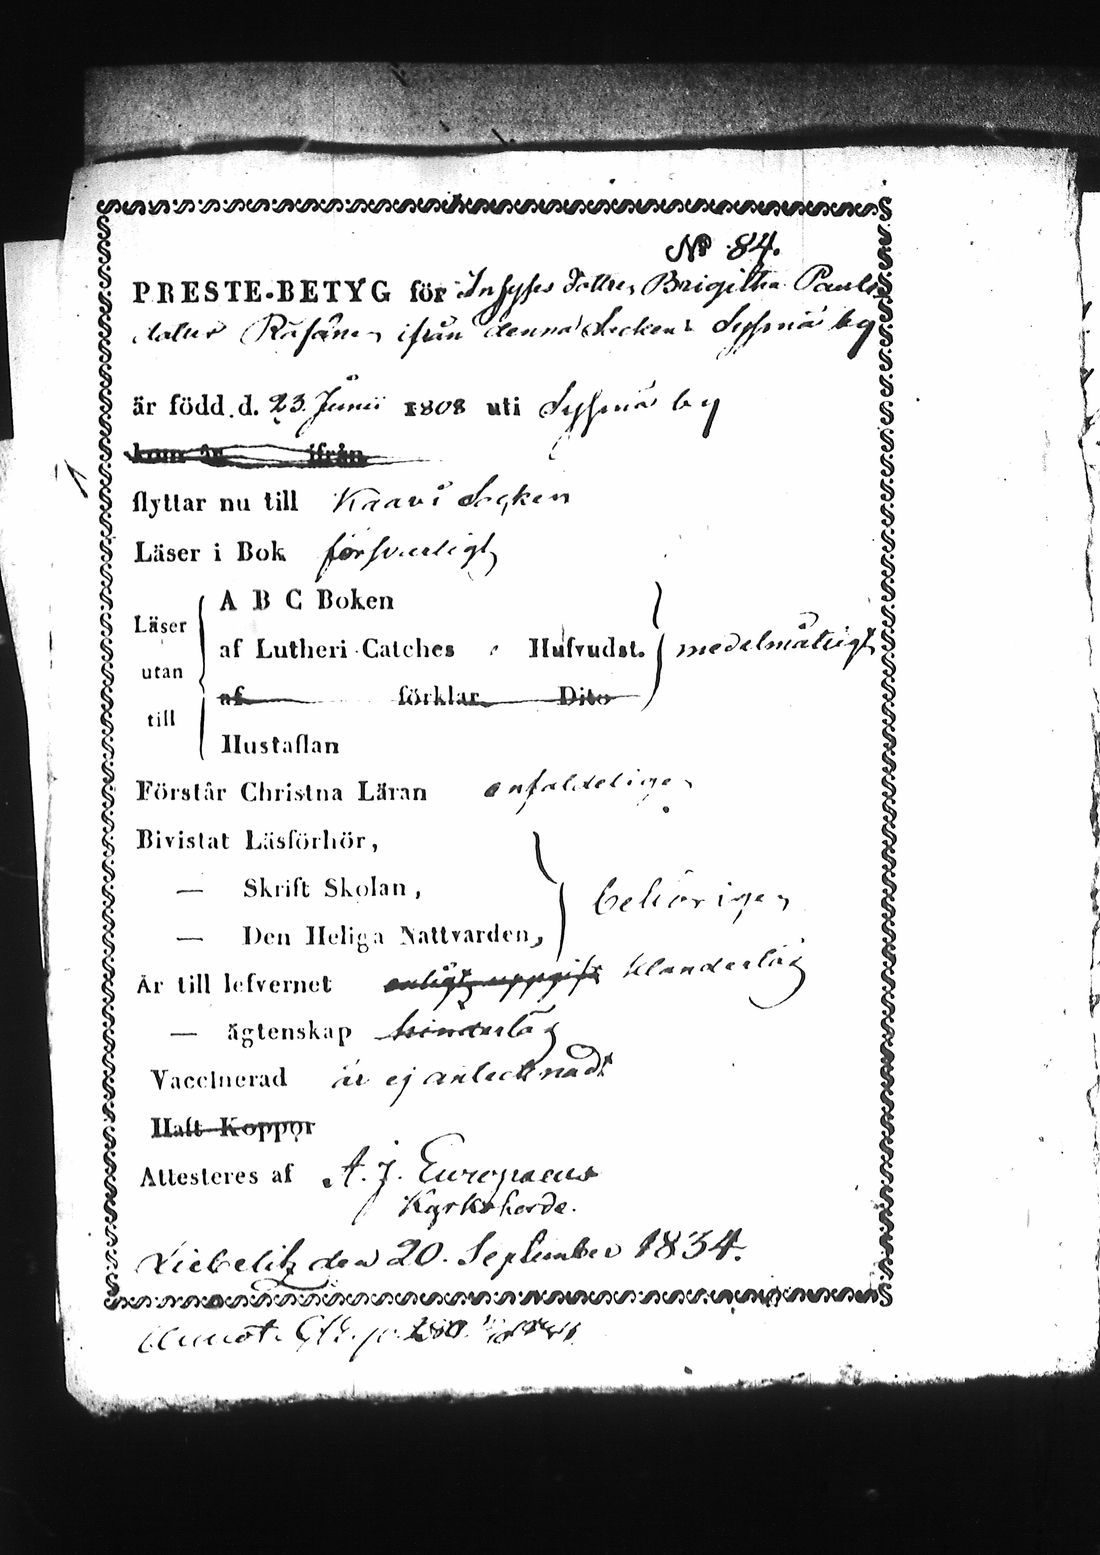 No 84.
PRESTE-BETYG för Inhyses Dottren Brigitha Pauls
dotter Räsänen ifrån denna Socken Sysmä by
är född d. 23 Junii 1808 uti Sysmä by
kom år ifrån
flyttar nu till Kaavi Socken
Läser i Bok försvarligt
Läser utan till
A B C Boken
af Lutheri Catches Hufvudst. medelmåttigt
af förklar. Dito
Hustaflan
Förstår Christna Läran enfaldeligen
Bivistat Läsförhör,
— Skrift Skolan, behörigen
— Den Heliga Nattvarden,
Är till lefvernet enligt uppgift klanderlös
— ägtenskap hinderlös
Vaccinerad är ej antecknadt
Haft Koppor
Attesteres af A. J. Europaeus
Kyrkoherde.
Liebelitz den 20. September 1834.